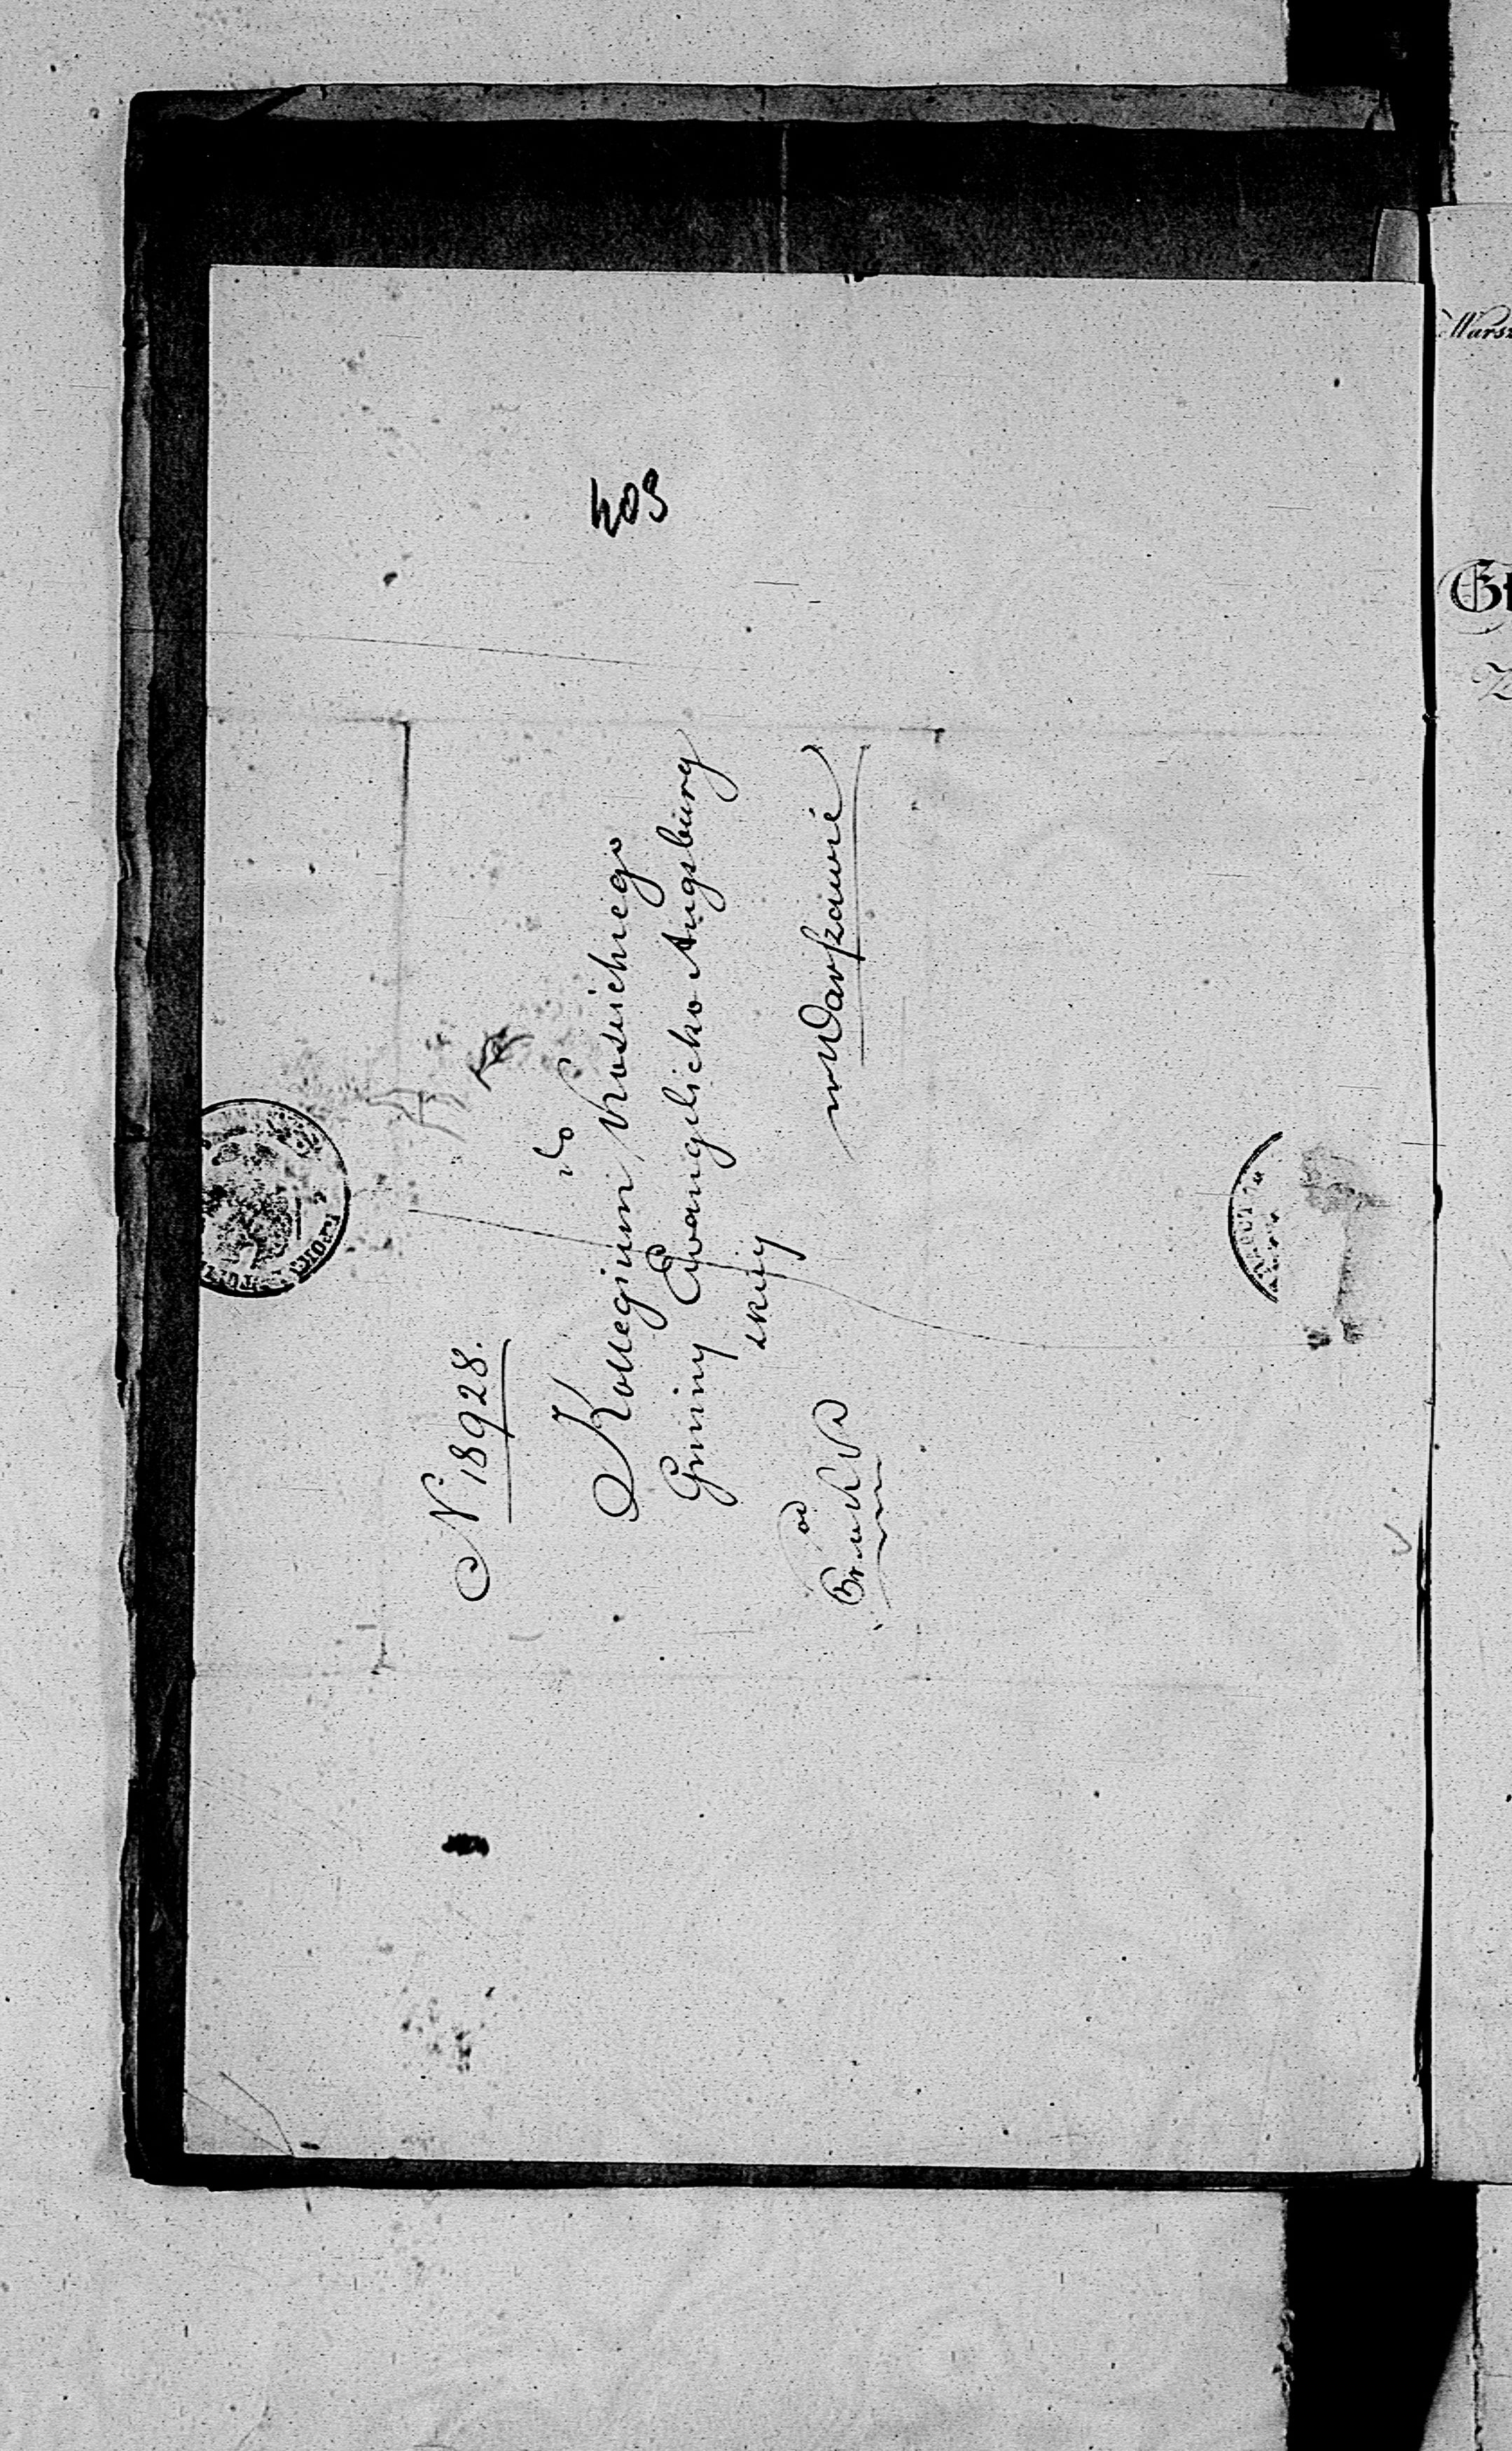 403
N 18928.
do
Kollegium Koscielnego
Gminy Ewangelicko Augsburg
skiéy
w Warszawie
od